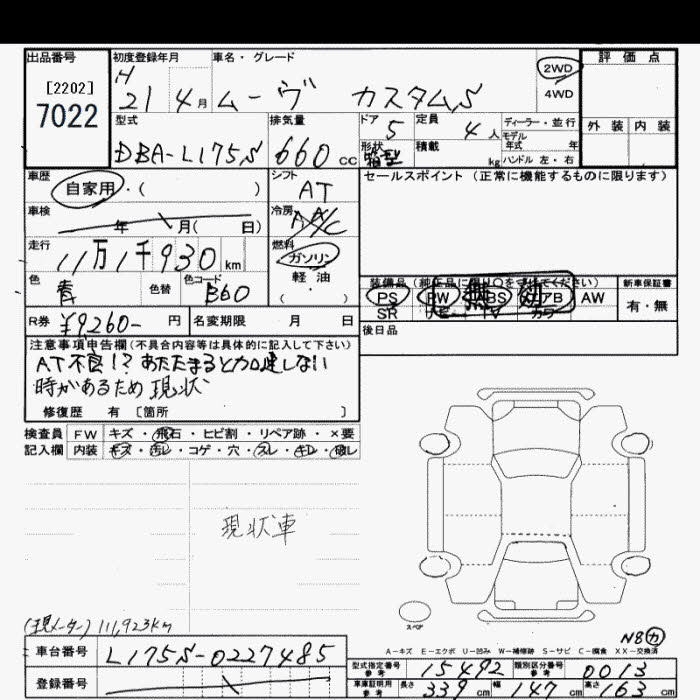 出品番号
[2202]
7022
初度登録年月
H
21 4月
車名・グレード
ムーヴ カスタムS
2WD
4WD
評価点
外装 内装
型式
DBA-L175S
排気量
660 CC
ドア
5
形状
箱型
定員
4人
積載
kg
ディーラー・並行
モデル
年式 年
ハンドル 左・右
車歴
自家用・( )
シフト
AT
セールスポイント(正常に機能するものに限ります)
車検
年 月( 日)
冷房
A/C
走行
11万1千930 km
燃料
ガソリン
軽油
( )
色
青
色替
色コード
B60
装備品
PS PW BS AB AW
SR TV カワ
新車保証書
有・無
R券 ¥9,260- 円
名変期限 月 日
後日品
注意事項申告欄(不具合内容等は具体的に記入して下さい)
AT不良!? あたたまると加速しない
時があるため 現状
修復歴 有 [箇所 ]
検査員 FW キズ・飛石・ヒビ割・リペア跡・×要
記入欄 内装 キズ・汚レ・コゲ・穴・スレ・キレ・破レ
現状車
(現メーター) 111,923km
車台番号 L175S-0227485
登録番号
スペア
N8 カ
A-キズ E-エクボ U-凹み W-補修跡 S-サビ C-腐食 XX-交換済
型式指定番号
参考
15492
類別区分番号
参考
0013
車庫証明用
参考
長さ 339cm 幅 147cm 高さ 163cm